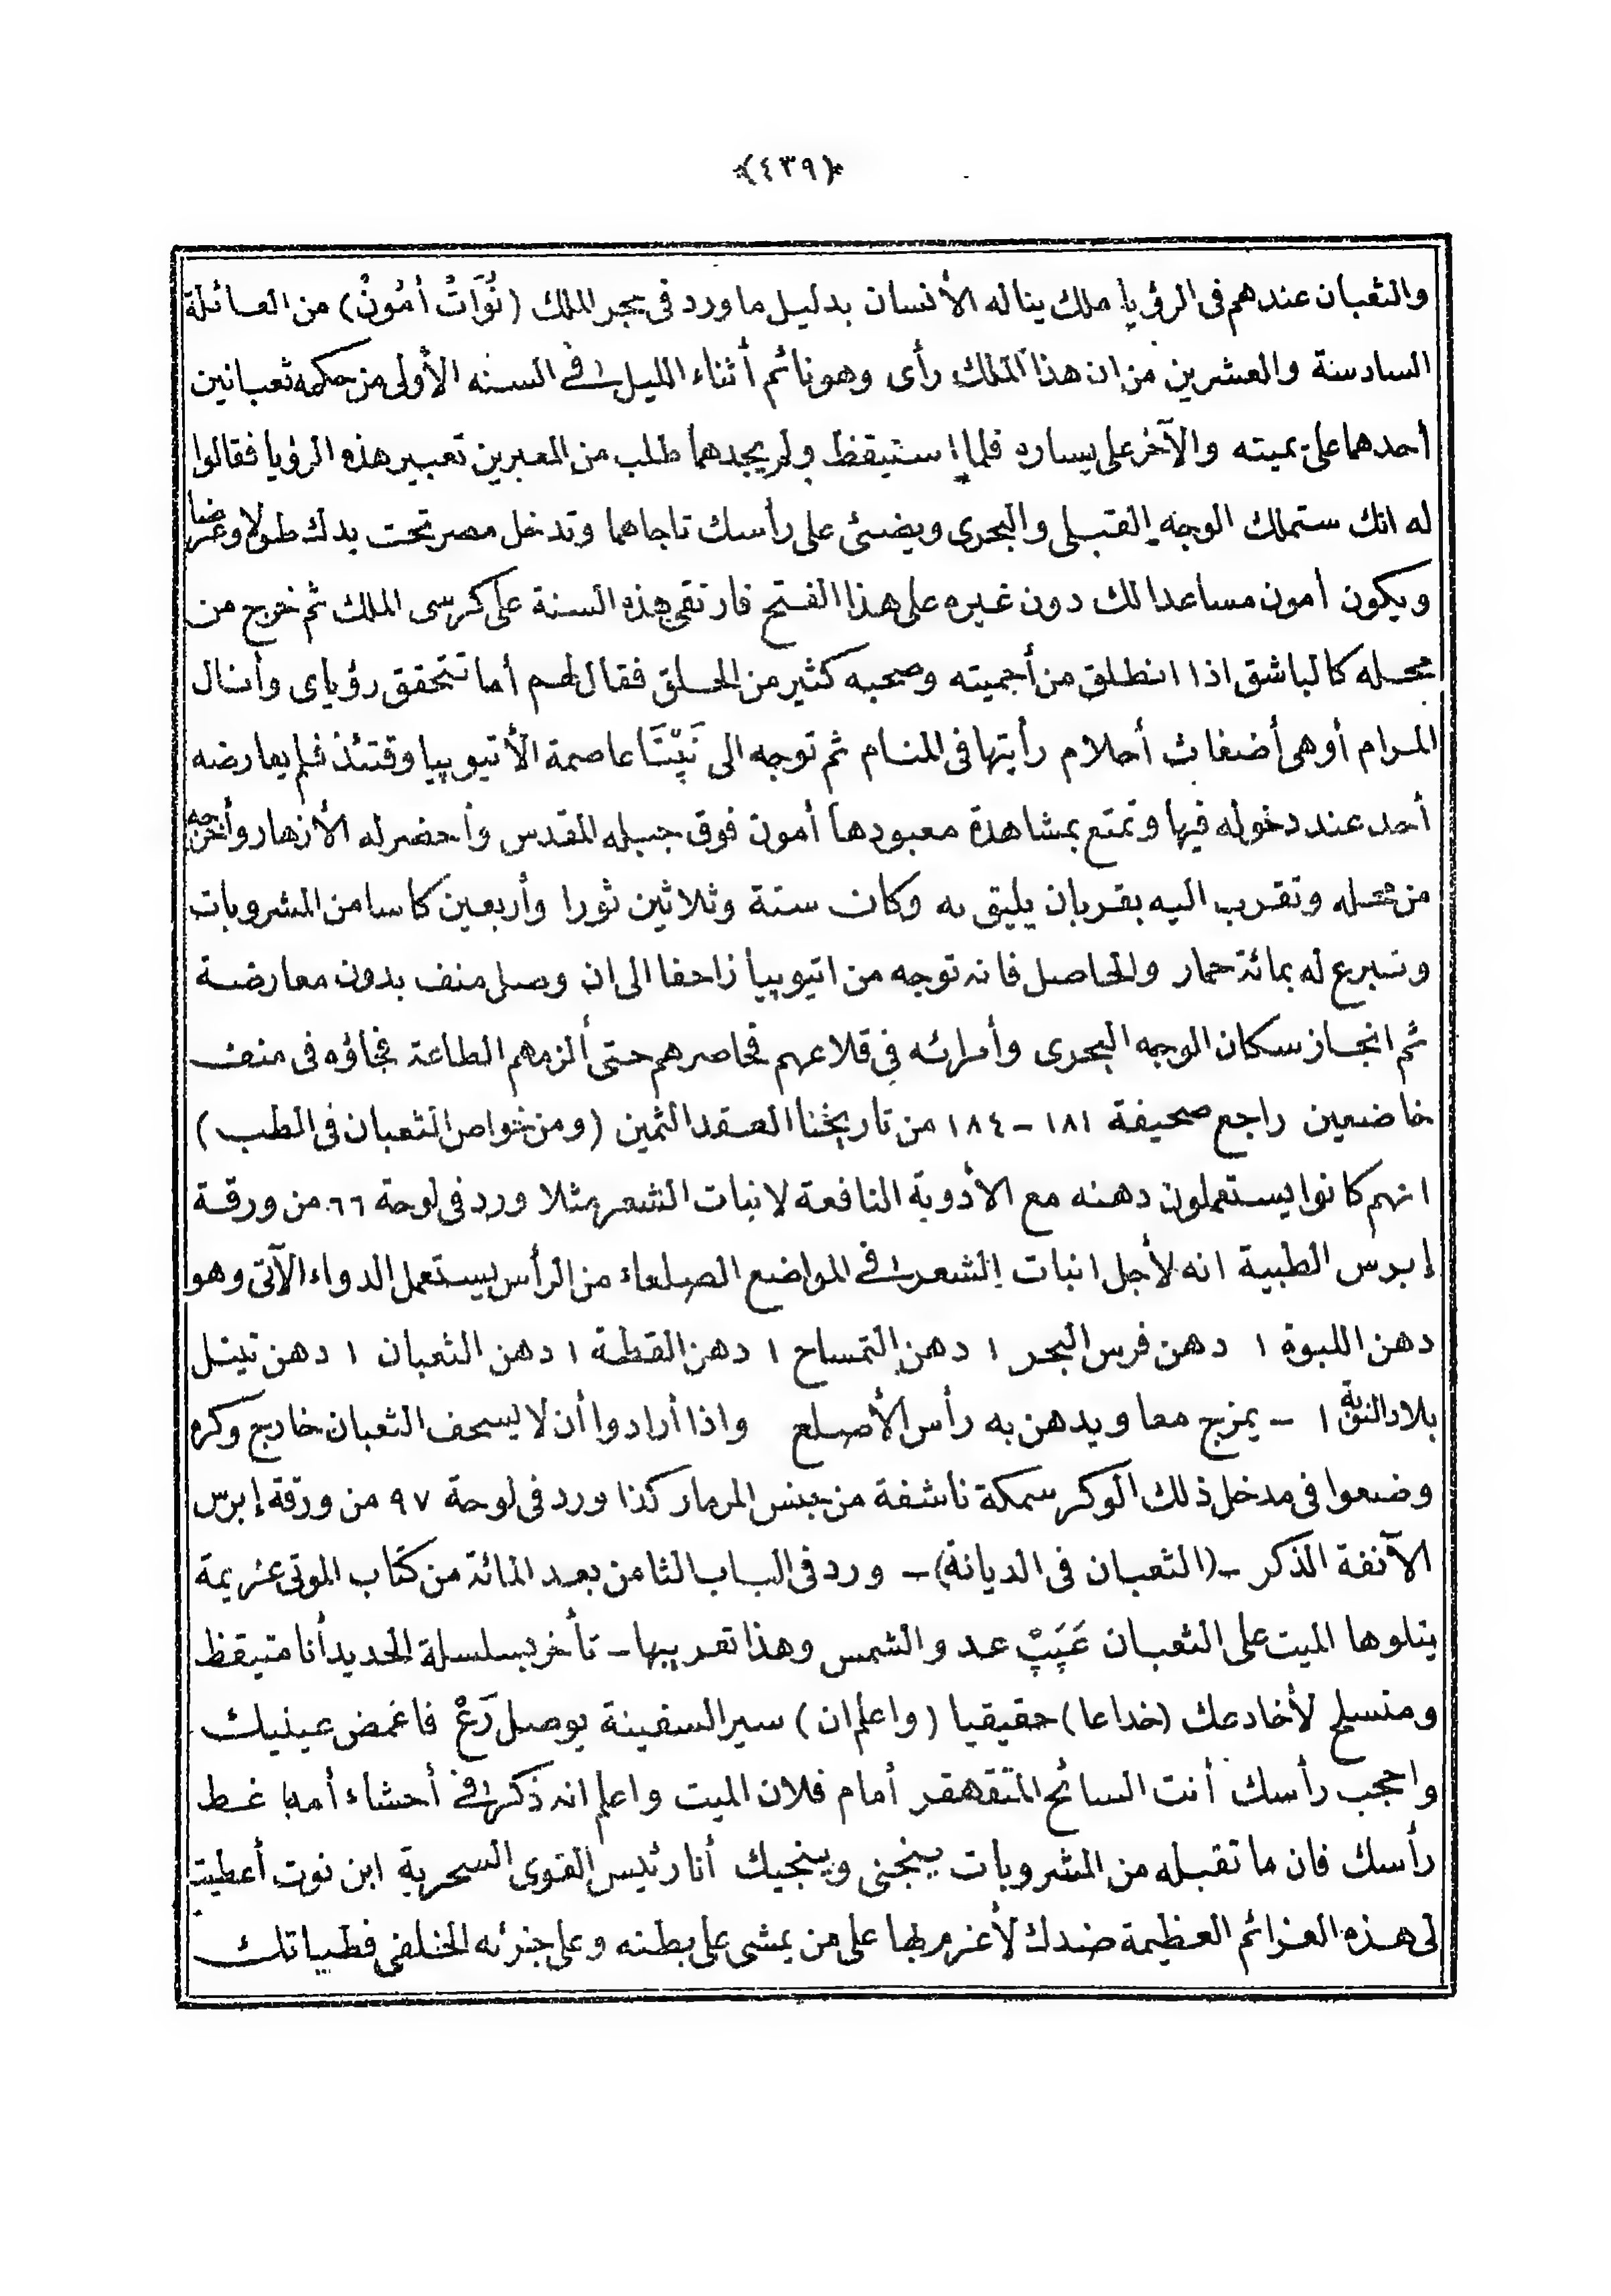 ﴿٤٣٩﴾
والثعبان عندهم فى الرؤيا ملك يناله الأنسان بدليل ما ورد فى حجر الملك (نُوَاتْ أمُونْ) من العائلة
السادسة والعشرين من ان هذا الملك رأى وهو نائم أثناء الليل فى السنه الأولى من حكمه ثعبانين
أحدهما على يمينه والآخر على يساره فلما استيقظ ولم يجدهما طلب من المعبرين تعبير هذه الرؤيا فقالوا
له انك ستملك الوجه القبلى والبحرى ويضئ على رأسك تاجاهما وتدخل مصر تحت يدك طولا وعرضا
ويكون أمون مساعدا لك دون غيره على هذا الفتح فارتقى هذه السنة على كرسى الملك ثم خرج من
محله كالباشق اذا انطلق من أجميته وصحبه كثير من الخلق فقال لهم أما تتحقق رؤياى وأنال
المرام أو هى أضغاث أحلام رأيتها فى المنام ثم توجه الى نَپَتَا عاصمة الأتيوپيا وقتئذ فلم يعارضه
أحد عند دخوله فيها وتمتع بمشاهدة معبودها أمون فوق جبله المقدس وأحضر له الأزهار وأخرجه
من محله وتقرب اليه بقربان يليق به وكان ستة وثلاثين ثورا وأربعين كاسا من المشروبات
وتبرع له بمائة حمار والحاصل فانه توجه من اتيوپيا زاحفا الى ان وصل منف بدون معارضة
ثم انحاز سكان الوجه البحرى وأمرائه فى قلاعهم فحاصرهم حتى ألزمهم الطاعة فجاؤه فى منف
خاضعين راجع صحيفة ١٨١ – ١٨٤ من تاريخنا العقد الثمين (ومن خواص الثعبان فى الطب)
انهم كانوا يستعملون دهنه مع الأدوية النافعة لانبات الشعر مثلا ورد فى لوحة ٦٦ من ورقة
إبرس الطبية انه لأجل انبات الشعر فى المواضع الصلعاء من الرأس يستعمل الدواء الآتى وهو
دهن اللبوة ١ دهن فرس البحر ١ دهن التمساح ١ دهن القطة ١ دهن الثعبان ١ دهن تيتل
بلاد النوبة ١ – يمزج معا ويدهن به رأس الأصلع واذا أرادوا أن لا يسحف الثعبان خارج وكره
وضعوا فى مدخل ذلك الوكر سمكة ناشفة من جنس المرمار كذا ورد فى لوحة ٩٧ من ورقة إبرس
الآنفة الذكر –(الثعبان فى الديانة)– ورد فى الباب الثامن بعد المائة من كتاب الموتى عزيمة
يتلوها الميت على الثعبان عَپَپْ عدو الشمس وهذا تعريبها – تأخر بسلسلة الحديد أنا متيقظ
ومتسلح لأخادعك (خداعا) حقيقيا (واعلم ان) سير السفينة يوصل رَعْ فاغمض عينيك
واحجب رأسك أنت السائح المتقهقر أمام فلان الميت واعلم انه ذكر فى أحشاء أمه غط
رأسك فان ما تقبله من المشروبات ينجنى وينجيك أنا رئيس القوى السحرية ابن نوت أعطيت
لى هذه العزائم العظيمة ضدك لأعزم بها على من يمشى على بطنه وعلى جزئه الخلفى فطياتك